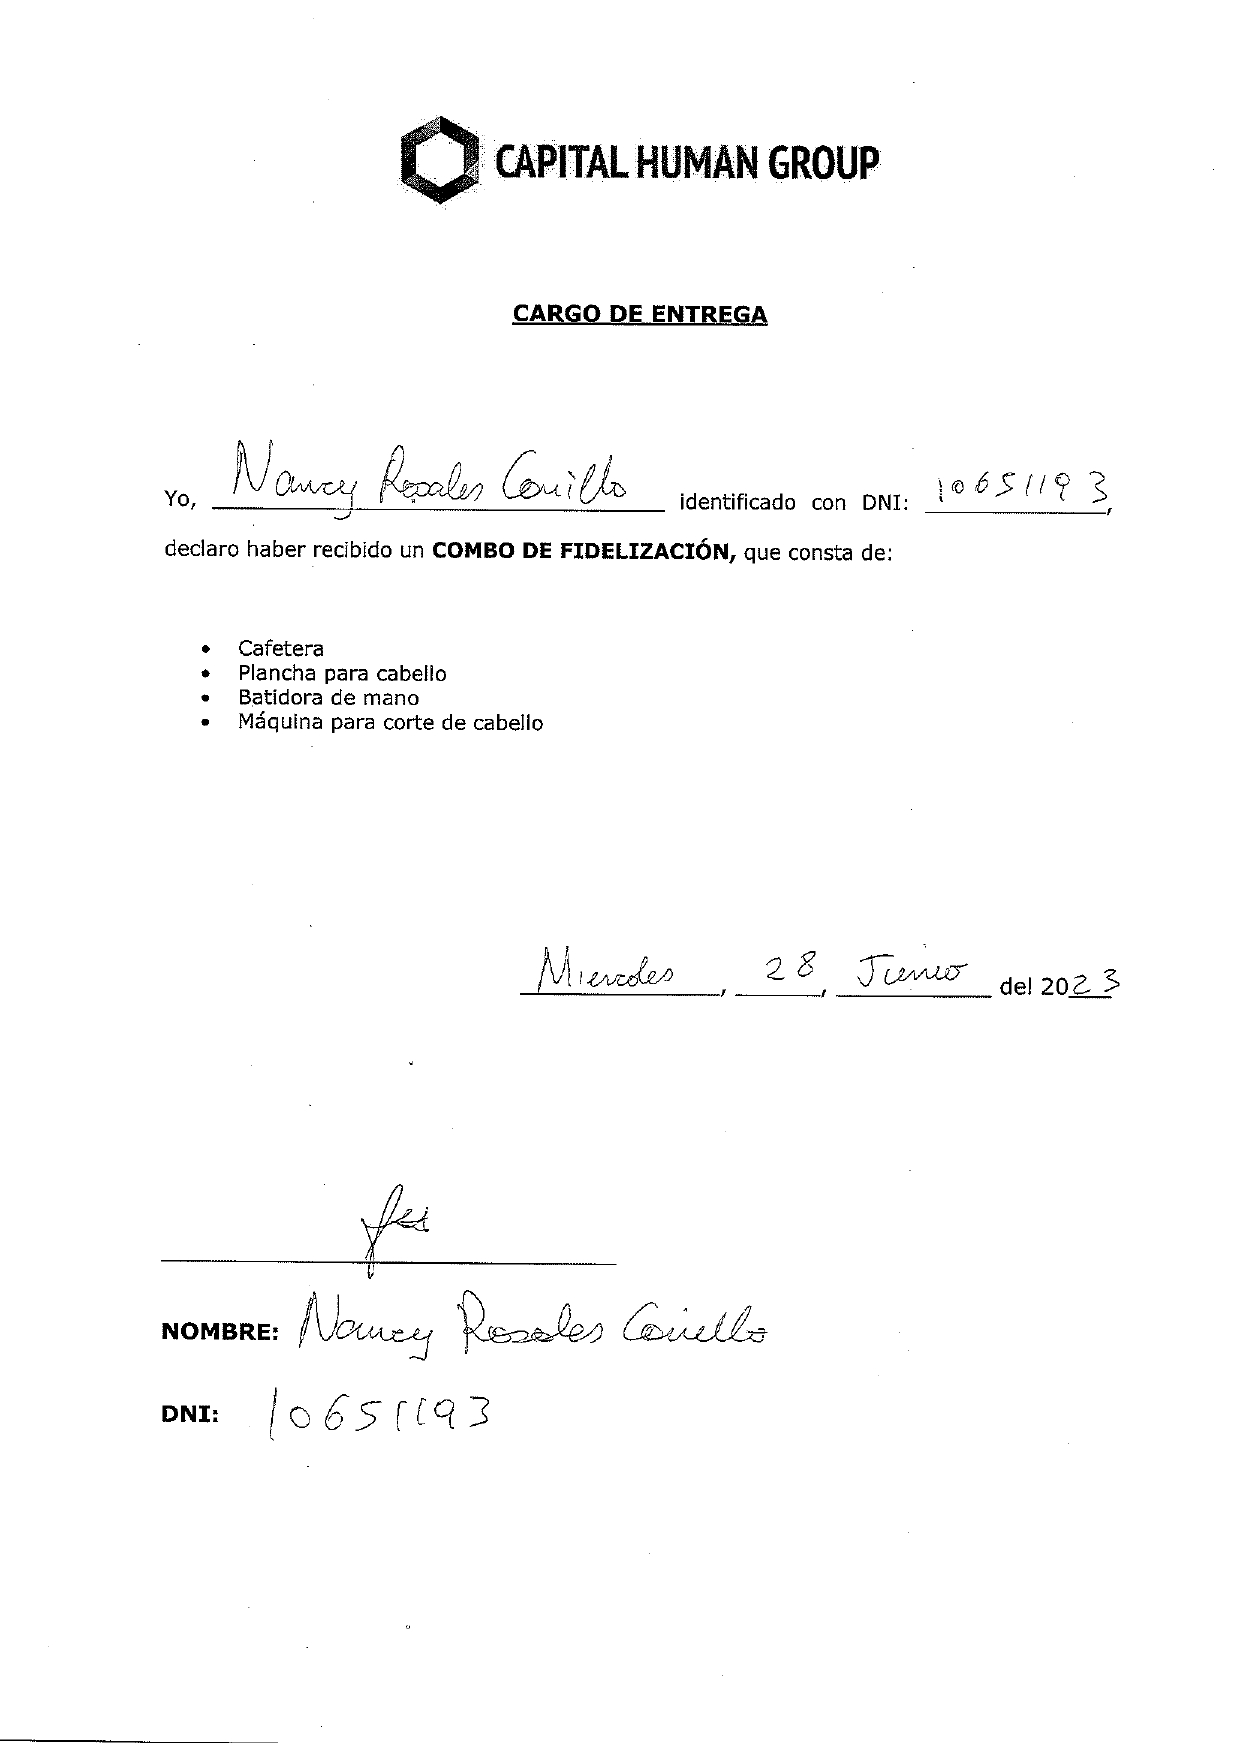 CAPITAL HUMAN GROUP
CARGO DE ENTREGA
Yo, Nancy Rosales identificado con DNI: 10651193,
declaro haber recibido un COMBO DE FIDELIZACIÓN, que consta de:
• Cafetera
• Plancha para cabello
• Batidora de mano
• Máquina para corte de cabello
Miercoles, 28, Junio del 2023
NOMBRE: Nancy Rosales
DNI: 10651193